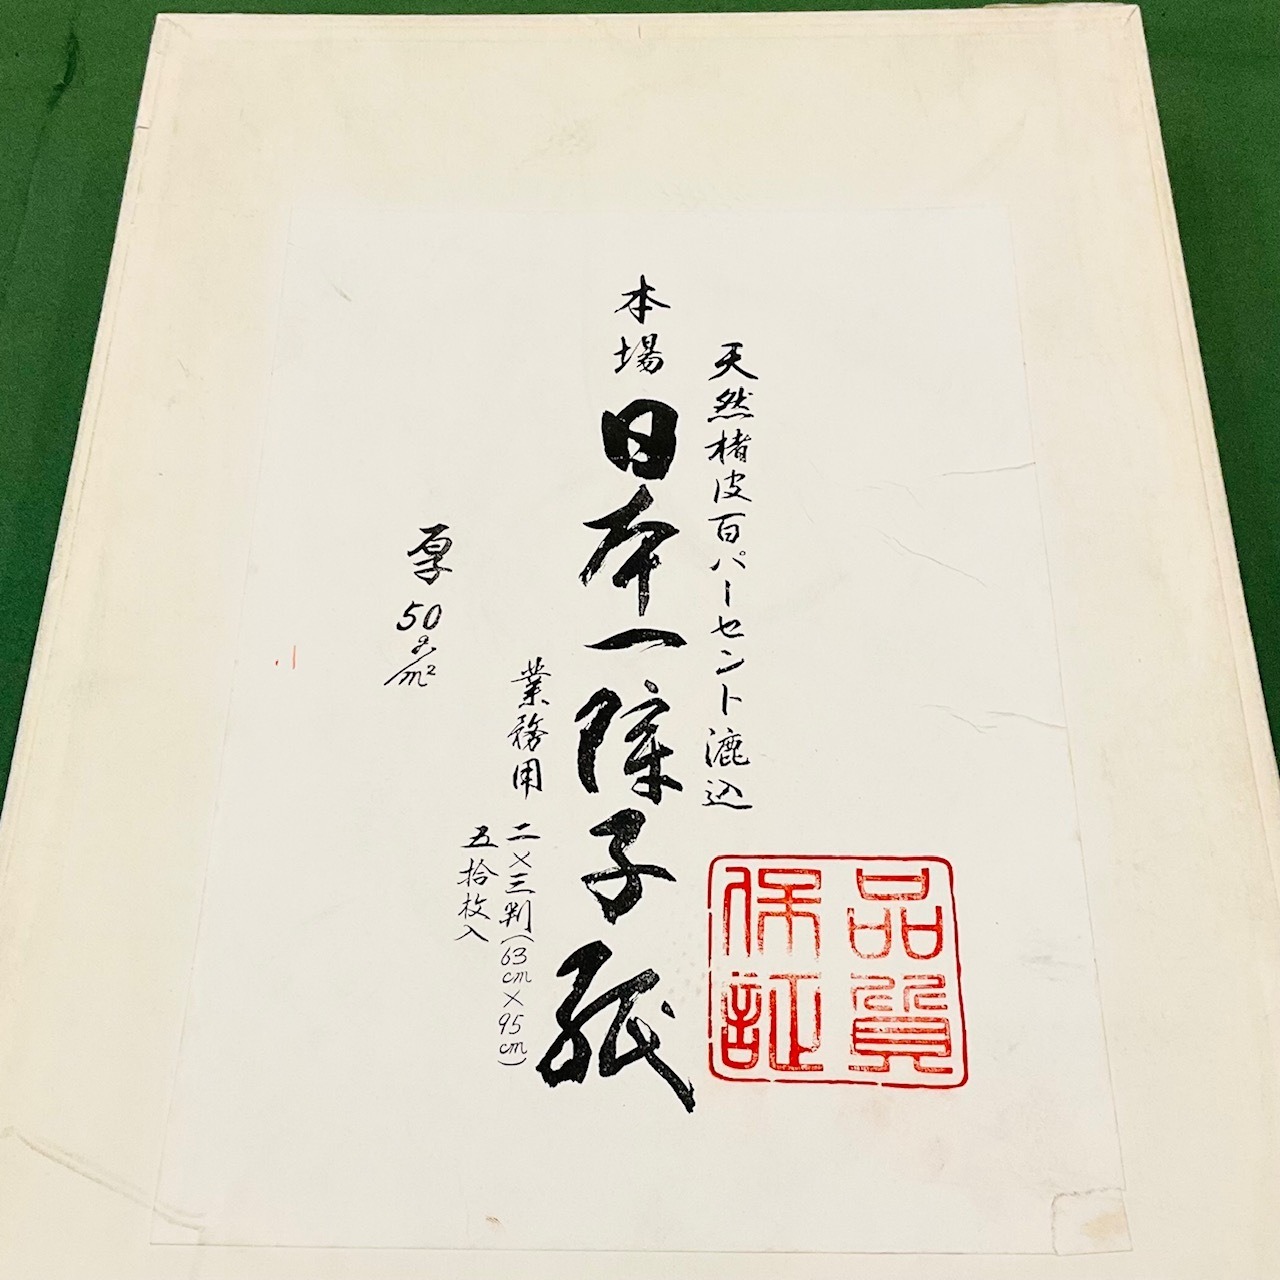 天然楮皮百パーセント漉込
品質
保証
本場 日本一障子紙
業務用
二×三判(63cm×95cm)
五拾枚入
厚 50g/m²